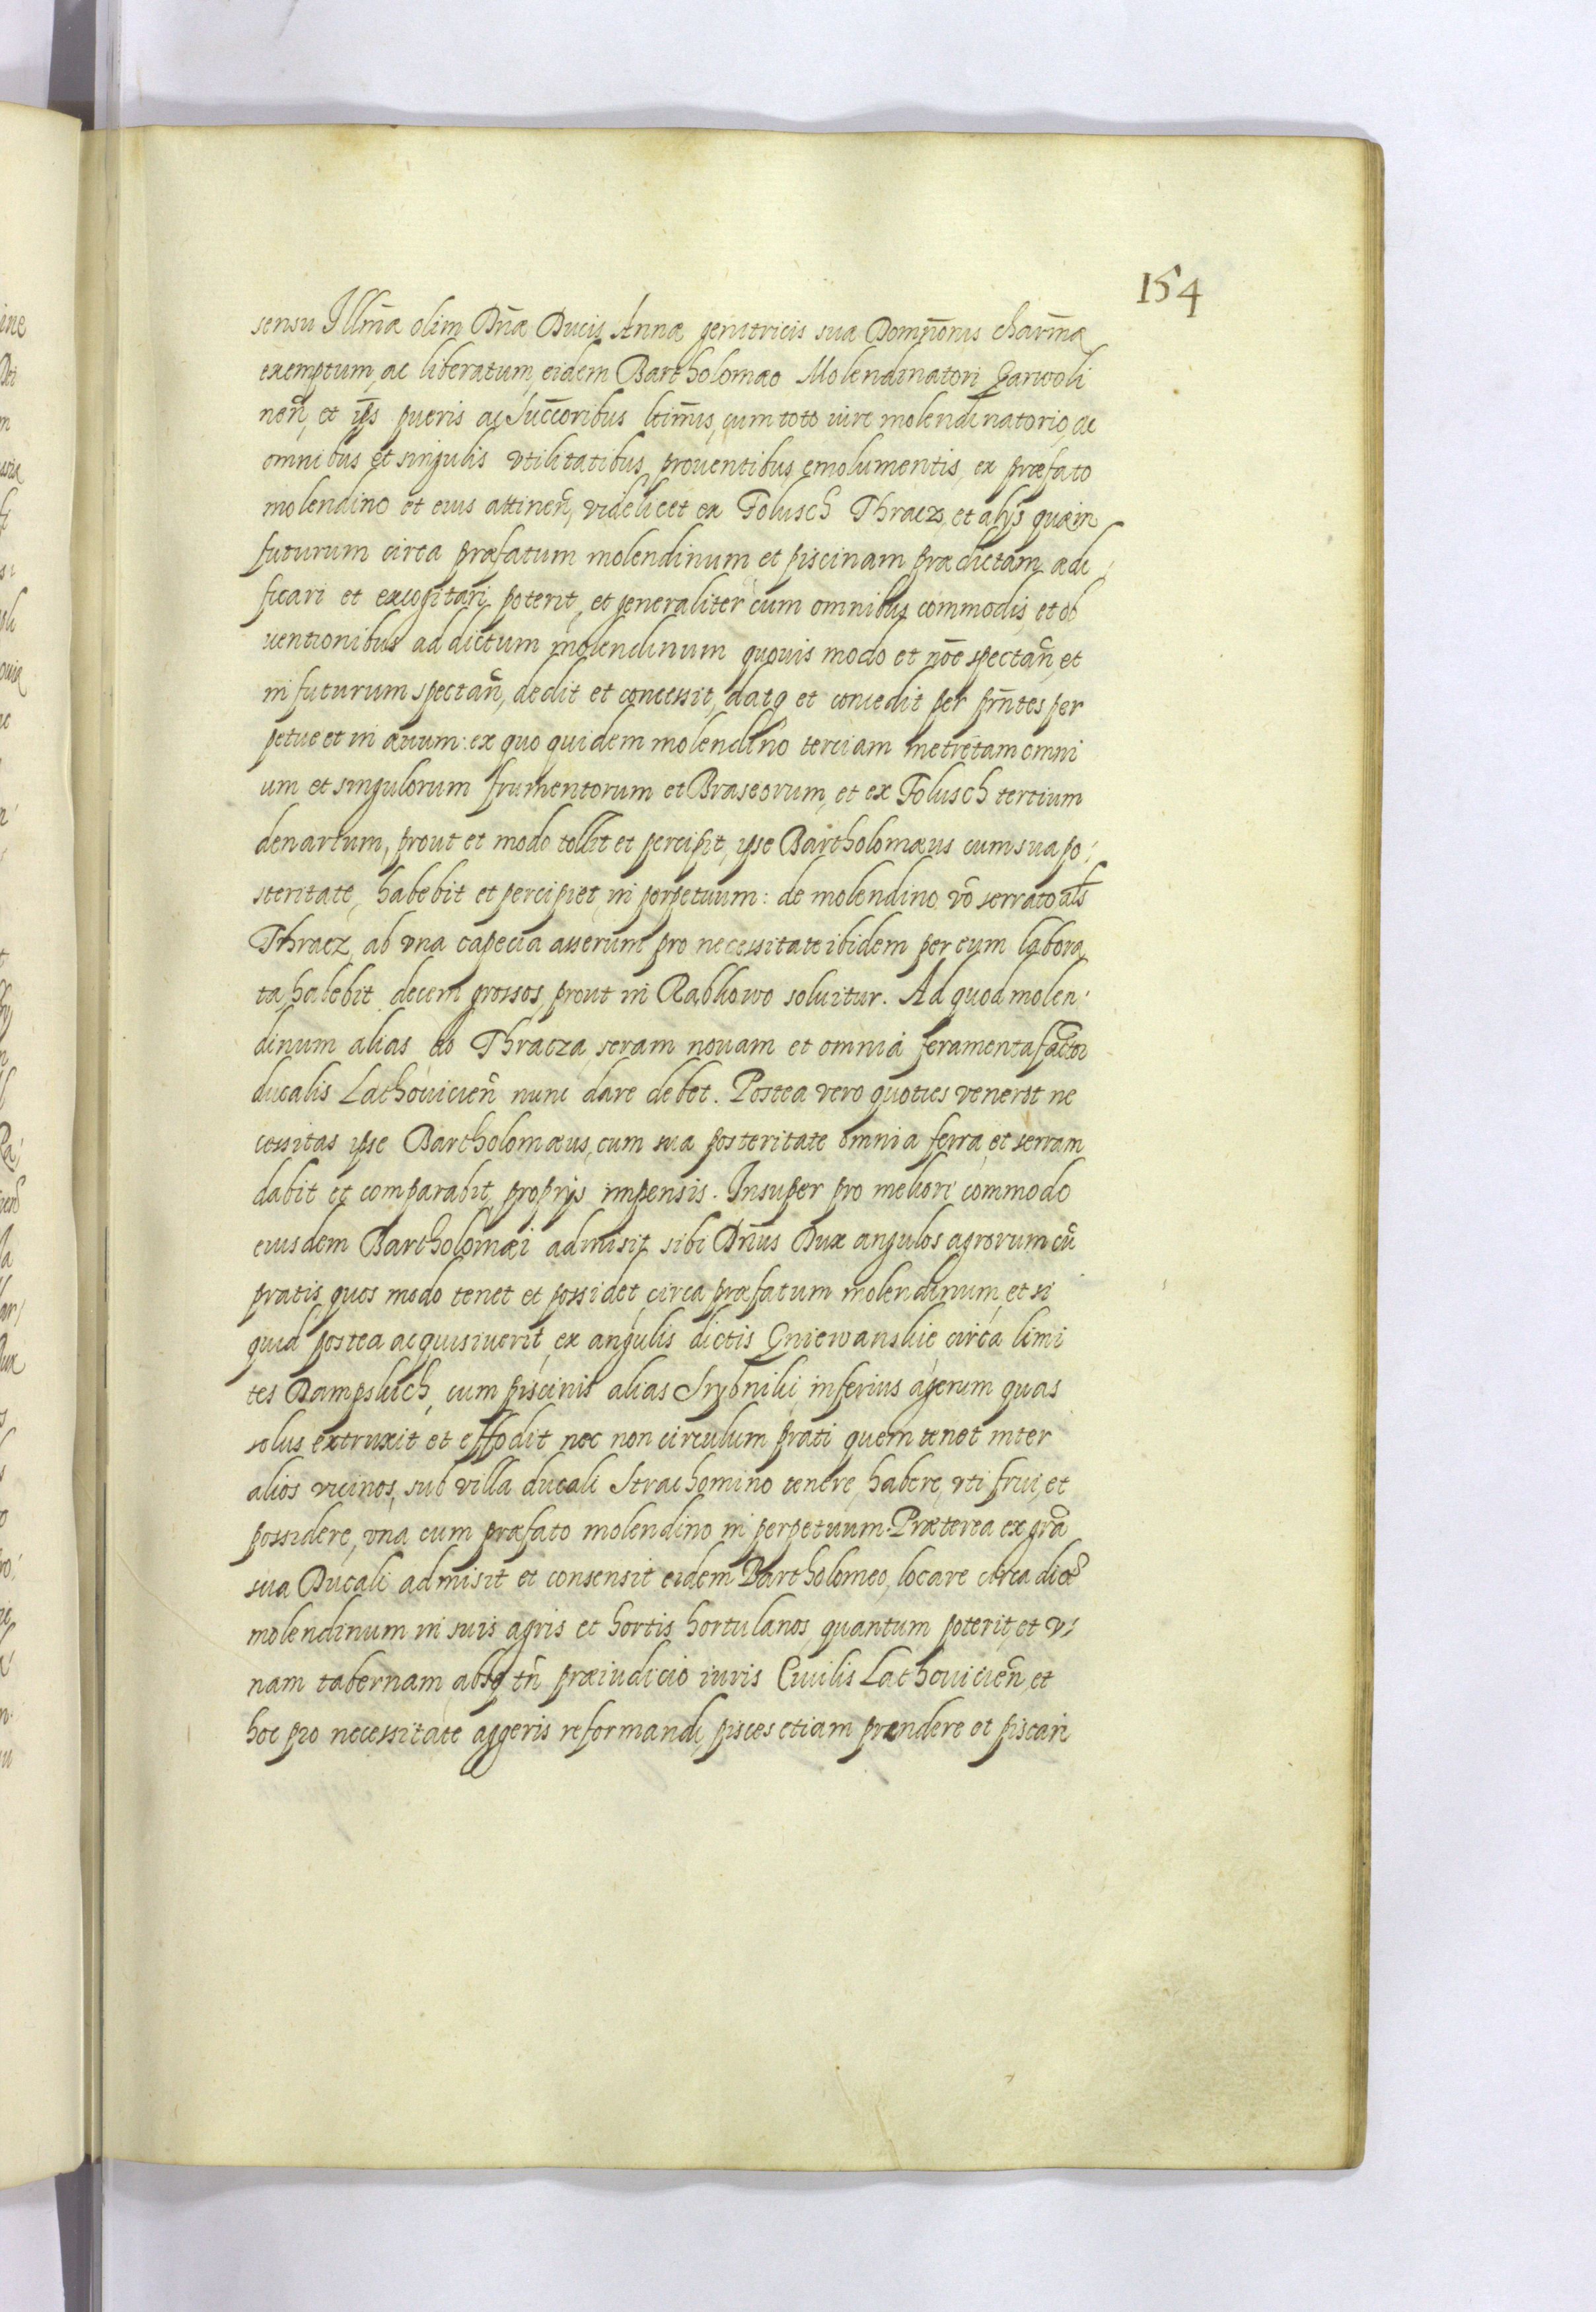 154
sensu Illm̃æ olim Dñæ Ducis Annæ genitricis sua Domñonis charm̃æ
exemptum, ac liberatum, eidem Bartholomæo Molendinatori Garwoli
neñ, et ip̃s pueris ac Succ̃oribus ltim̃is, cum toto iure molendinatorio, ac
omnibus et singulis vtilitatibus, prouentibus, emolumentis, ex præfato
molendino et eius attineñ, videlicet ex Folusch Thracz, et alÿs quæ in
futurum circa præfatum molendinum et piscinam prædictam ædi,
ficari et excogitari poterit, et generaliter cum omnibus commodis, et ob
uentionibus ad dictum molendinum quouis modo et nõe spectañ, et
in futurum spectañ, dedit et concessit, datq et concedit per pñtes per
petue et in æuum: ex quo quidem molendino terciam metretam omni
um et singulorum frumentorum et Braseorum, et ex Folusch tertium
denarium, prout et modo tollit et percipit, ipse Bartholomæus cum sua po:
steritate, habebit et percipiet, in perpetuum: de molendino võ serrato als
Thracz, ab vna capecia asserum pro necessitate ibidem per eum labora,
ta habebit decem grossos, prout in Rabkowo soluitur. Ad quod molen:
dinum alias do Thracza, seram nouam et omnia feramenta factor
ducalis Lathouicieñ nunc dare debet. Postea vero quoties venerit ne
cessitas ipse Bartholomæus, cum sua posteritate omnia ferra, et serram
dabit et comparabit, proprÿs impensis. Insuper pro meliori commodo
eiusdem Bartholomæi admisit sibi Dñus Dux angulos agrorum cũ
pratis, quos modo tenet et possidet, circa præfatum molendinum, et si
quid postea acquisiuerit, ex angulis dictis Gniewanskie circa limi
tes Dampskich, cum piscinis alias Srybniki, inferius agerum quas
solus extruxit et effodit nec non circulum prati quem tenet inter
alios vicinos, sub villa ducali Strachomino tenere, habere, vti frui, et
possidere, vna cum præfato molendino in perpetuum. Præterea ex grã
sua Ducali admisit et consensit eidem Bartholomeo, locare circa dict̃
molendinum in suis agris et hortis hortulanos, quantum poterit, et v:
nam tabernam, absq tñ præiudicio iuris Ciuilis Lathouicieñ, et
hoc pro necessitate aggeris reformandi, pisces etiam prendere et piscari